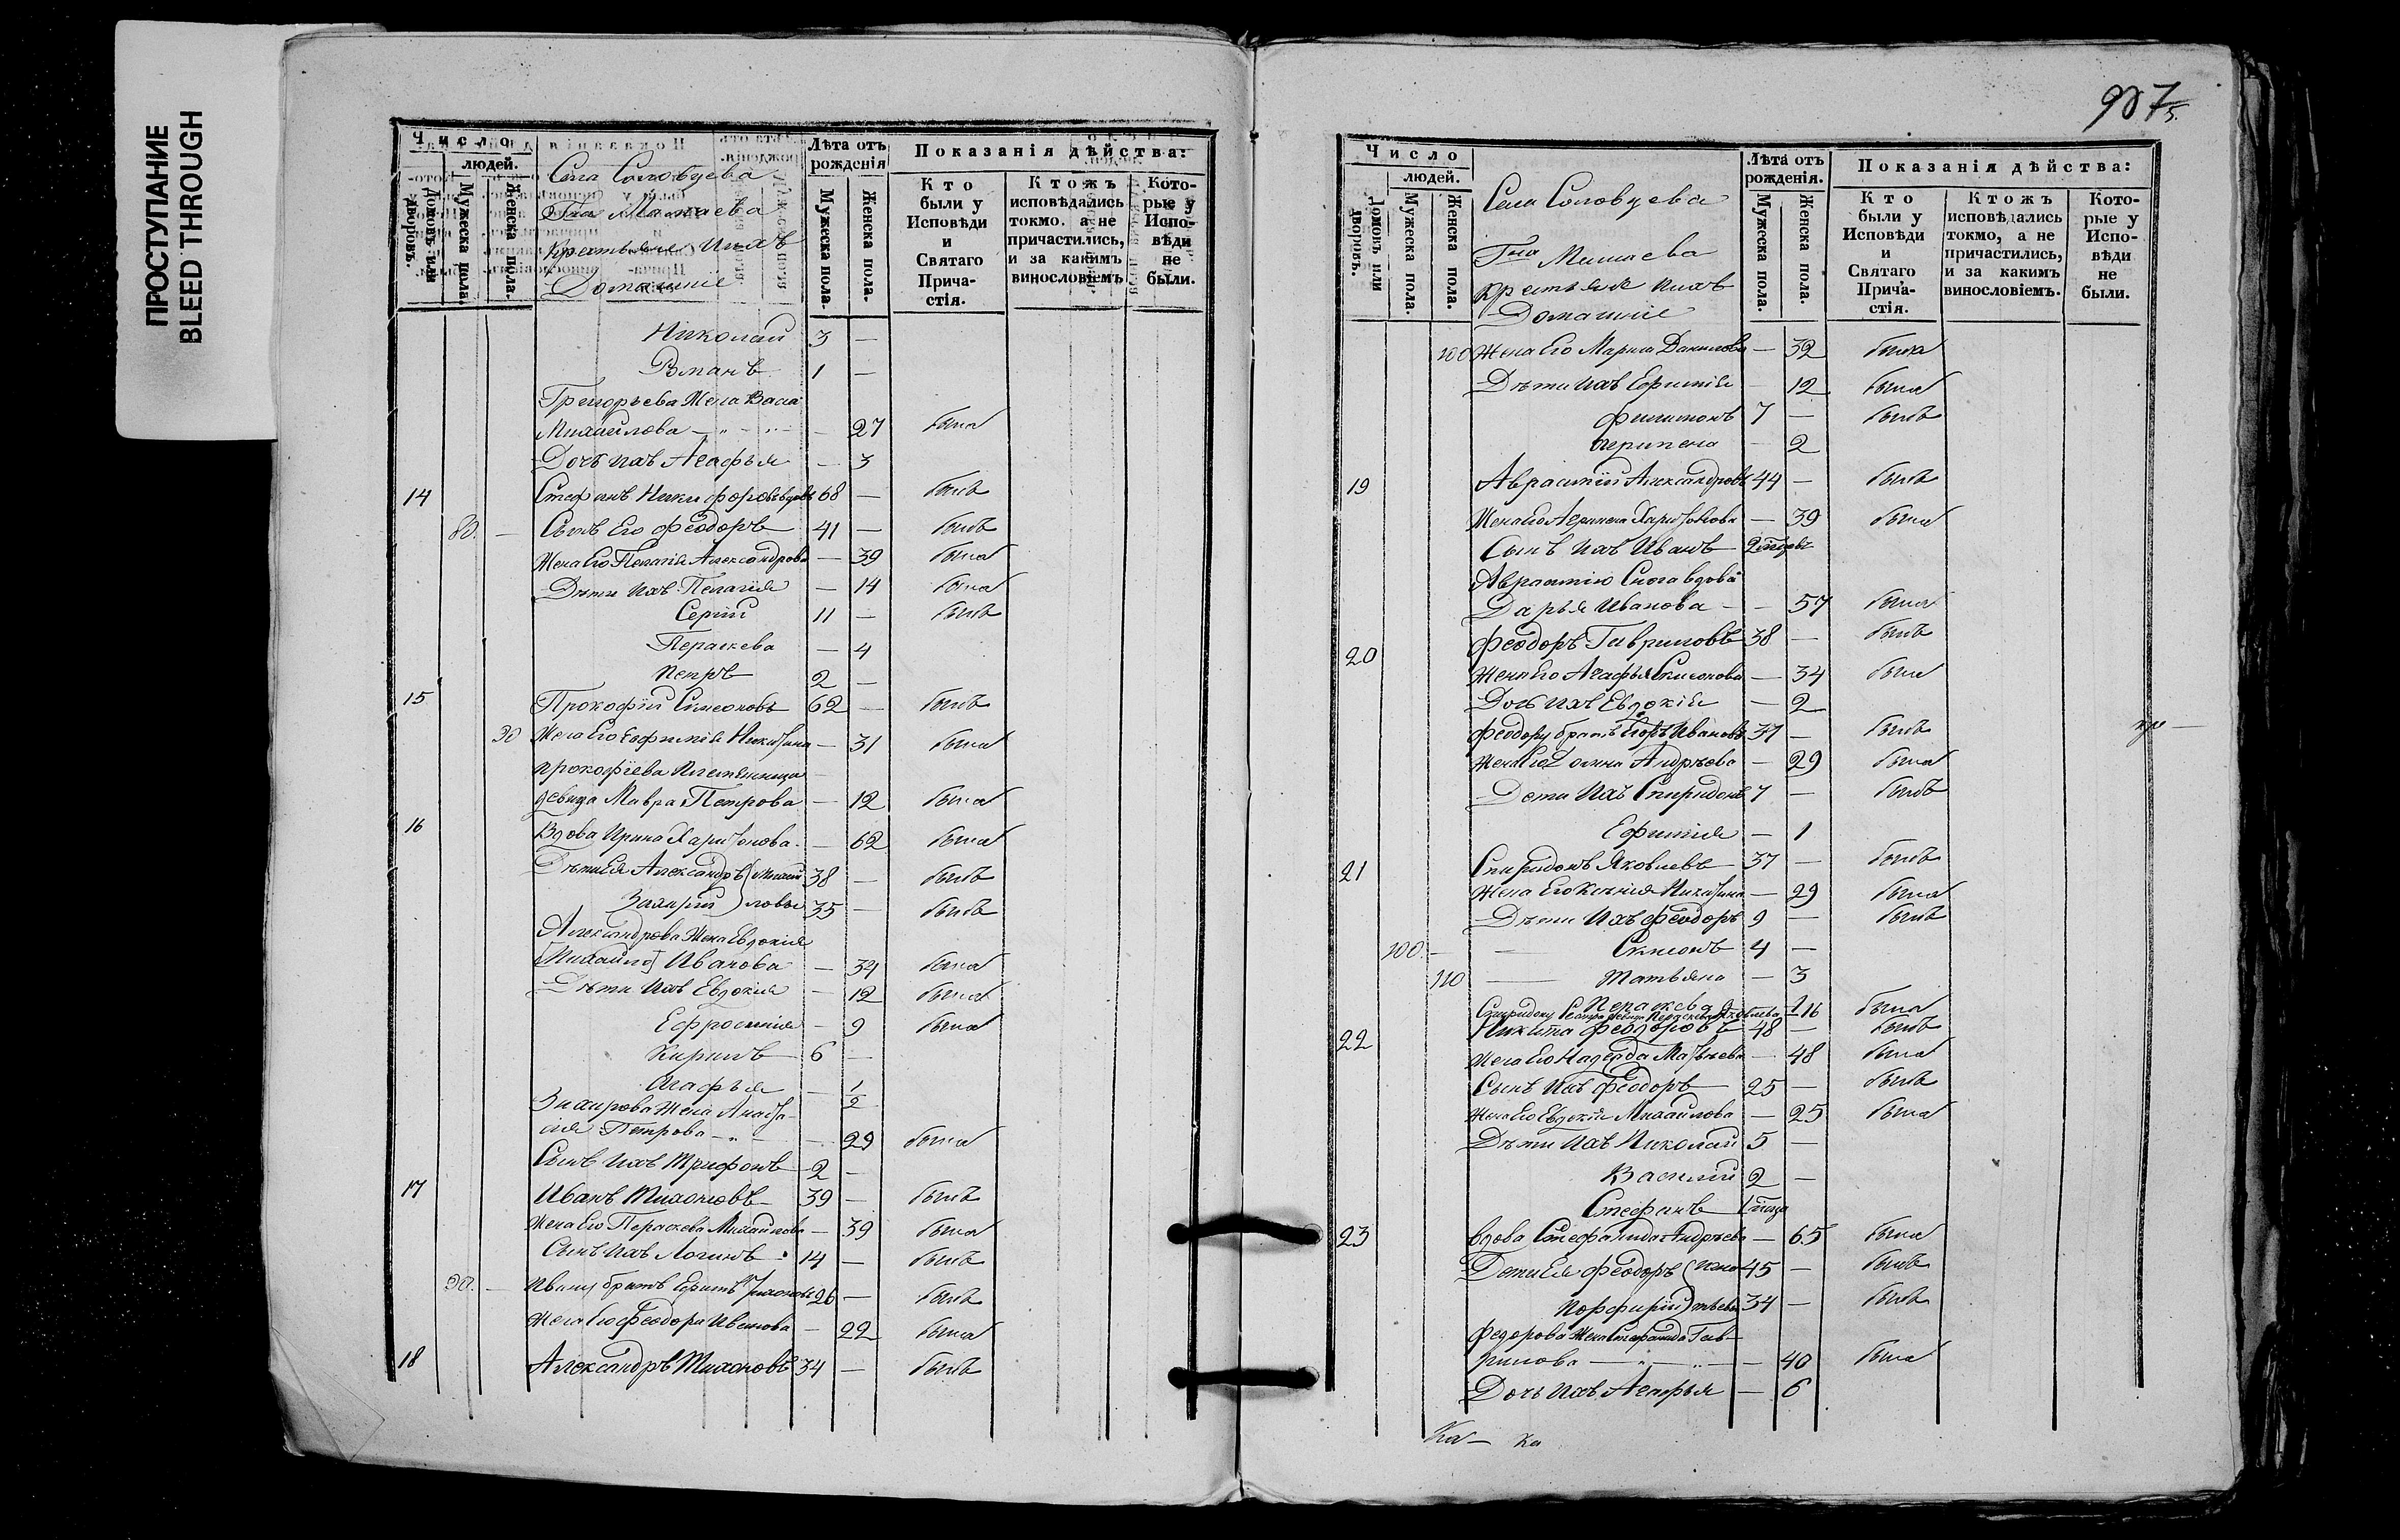 ПРОСТУПАНИЕ
BLEED THROUGH
Число
людей.
Домовъ или дворовъ.
Мужеска пола.
Женска пола.
Села Соловцева
Гна Мамаева
Крестьяне ихъ
Домашніе
Лѣта отъ рожденія
Мужеска пола.
Женска пола.
Показанія дѣйства:
Кто были у Исповѣди и Святаго Причастія.
Ктожъ исповѣдались токмо. а не причастились, и за какимъ винословіемъ
Которые у Исповѣди не были.
Николай 3 —
Романъ 1 —
Григорьева Жена Васа
Михайлова — 27 была
Дочь ихъ Агафья — 3
14 Стефанъ Никифоровъ вдовъ 68 — былъ
80. — Сынъ Его Феодоръ 41 — былъ
Жена Его Пелагія Александрова — 39 была
Дѣти ихъ Пелагія — 14 была
Сергій 11 — былъ
Пераскева — 4
Петръ 2 —
15 Прокофій Симеоновъ 62 — былъ
90 Жена Его Евфимія Никитина — 31 была
Прокофіева Племянница
девица Мавра Петрова — 12 была
16 Вдова Ирина Харитонова — 62 была
Дѣти Ея Александръ (Михай 38 — былъ
Захарій) ловы 35 — былъ
Александрова Жена Евдокія
[Михайло] Иванова — 34 была
Дѣти ихъ Евдокія — 12 была
Ефросинія — 9 была
Кирилъ 6 —
Агафья — 1/2
Захарова Жена Анаста-
сія Петрова — 29 была
Сынъ ихъ Трифонъ 2 —
17 Иванъ Тихоновъ 39 — былъ
Жена Его Пераскева Михайлова — 39 была
Сынъ ихъ Логинъ 14 — былъ
90. — Ивану братъ Ефимъ Тихоновъ 26 — былъ
Жена Его Феодора Иванова — 22 была
18 Александръ Тихоновъ 34 — былъ
Число
людей.
Домовъ или дворовъ.
Мужеска пола.
Женска пола.
Села Соловцева
Гна Мамаева
Крестьяне ихъ
Домашніе
Лѣта отъ рожденія.
Мужеска пола.
Женска пола.
Показанія дѣйства:
Кто были у Исповѣди и Святаго Причастія.
Ктожъ исповѣдались токмо, а не причастились, и за какимъ винословіемъ.
Которые у Исповѣди не были.
100 Жена Его Марина Данилова — 32 была
Дѣти ихъ Ефимія — 12 была
Филимонъ 7 — былъ
— 2
19 Александровъ 44 — былъ
Жена Его Харитонова — 39 была
Сынъ ихъ Иванъ 2
Сноха вдова
Дарья Иванова — 57 была
20 Феодоръ Гавриловъ 38 — былъ
Жена Его Агафья Симеонова — 34 была
Дочь ихъ Евдокія — 2
Феодору братъ Егоръ Ивановъ 37 — былъ
Жена Его Андрѣева — 29 была
Дети ихъ Спиридонъ 7 — былъ
Ефимія — 1
21 Спиридонъ Яковлевъ 37 — былъ
Жена Его Ксенія Никитина — 29 была
Дѣти ихъ Феодоръ 9 — былъ
100. — Симеонъ 4 —
110 Татьяна — 3
Пераскева — 1
Спиридону Сестра девица Пераскева Яковлева 16 была
22 Никита Феодоровъ 48 — былъ
Жена Его Надежда Матвѣева — 48 была
Сынъ ихъ Феодоръ 25 — былъ
Жена Его Евдокія Михайлова — 25 была
Дѣти ихъ Николай 5 —
Василій 2 —
Стефанъ
23 Вдова Стефанида Андрѣева — 65 была
Дети Ея Феодоръ 45 — былъ
Порфирій 34 — былъ
Федорова Жена Стефанида Гав-
рилова — 40 была
Дочь ихъ Агафья — 6